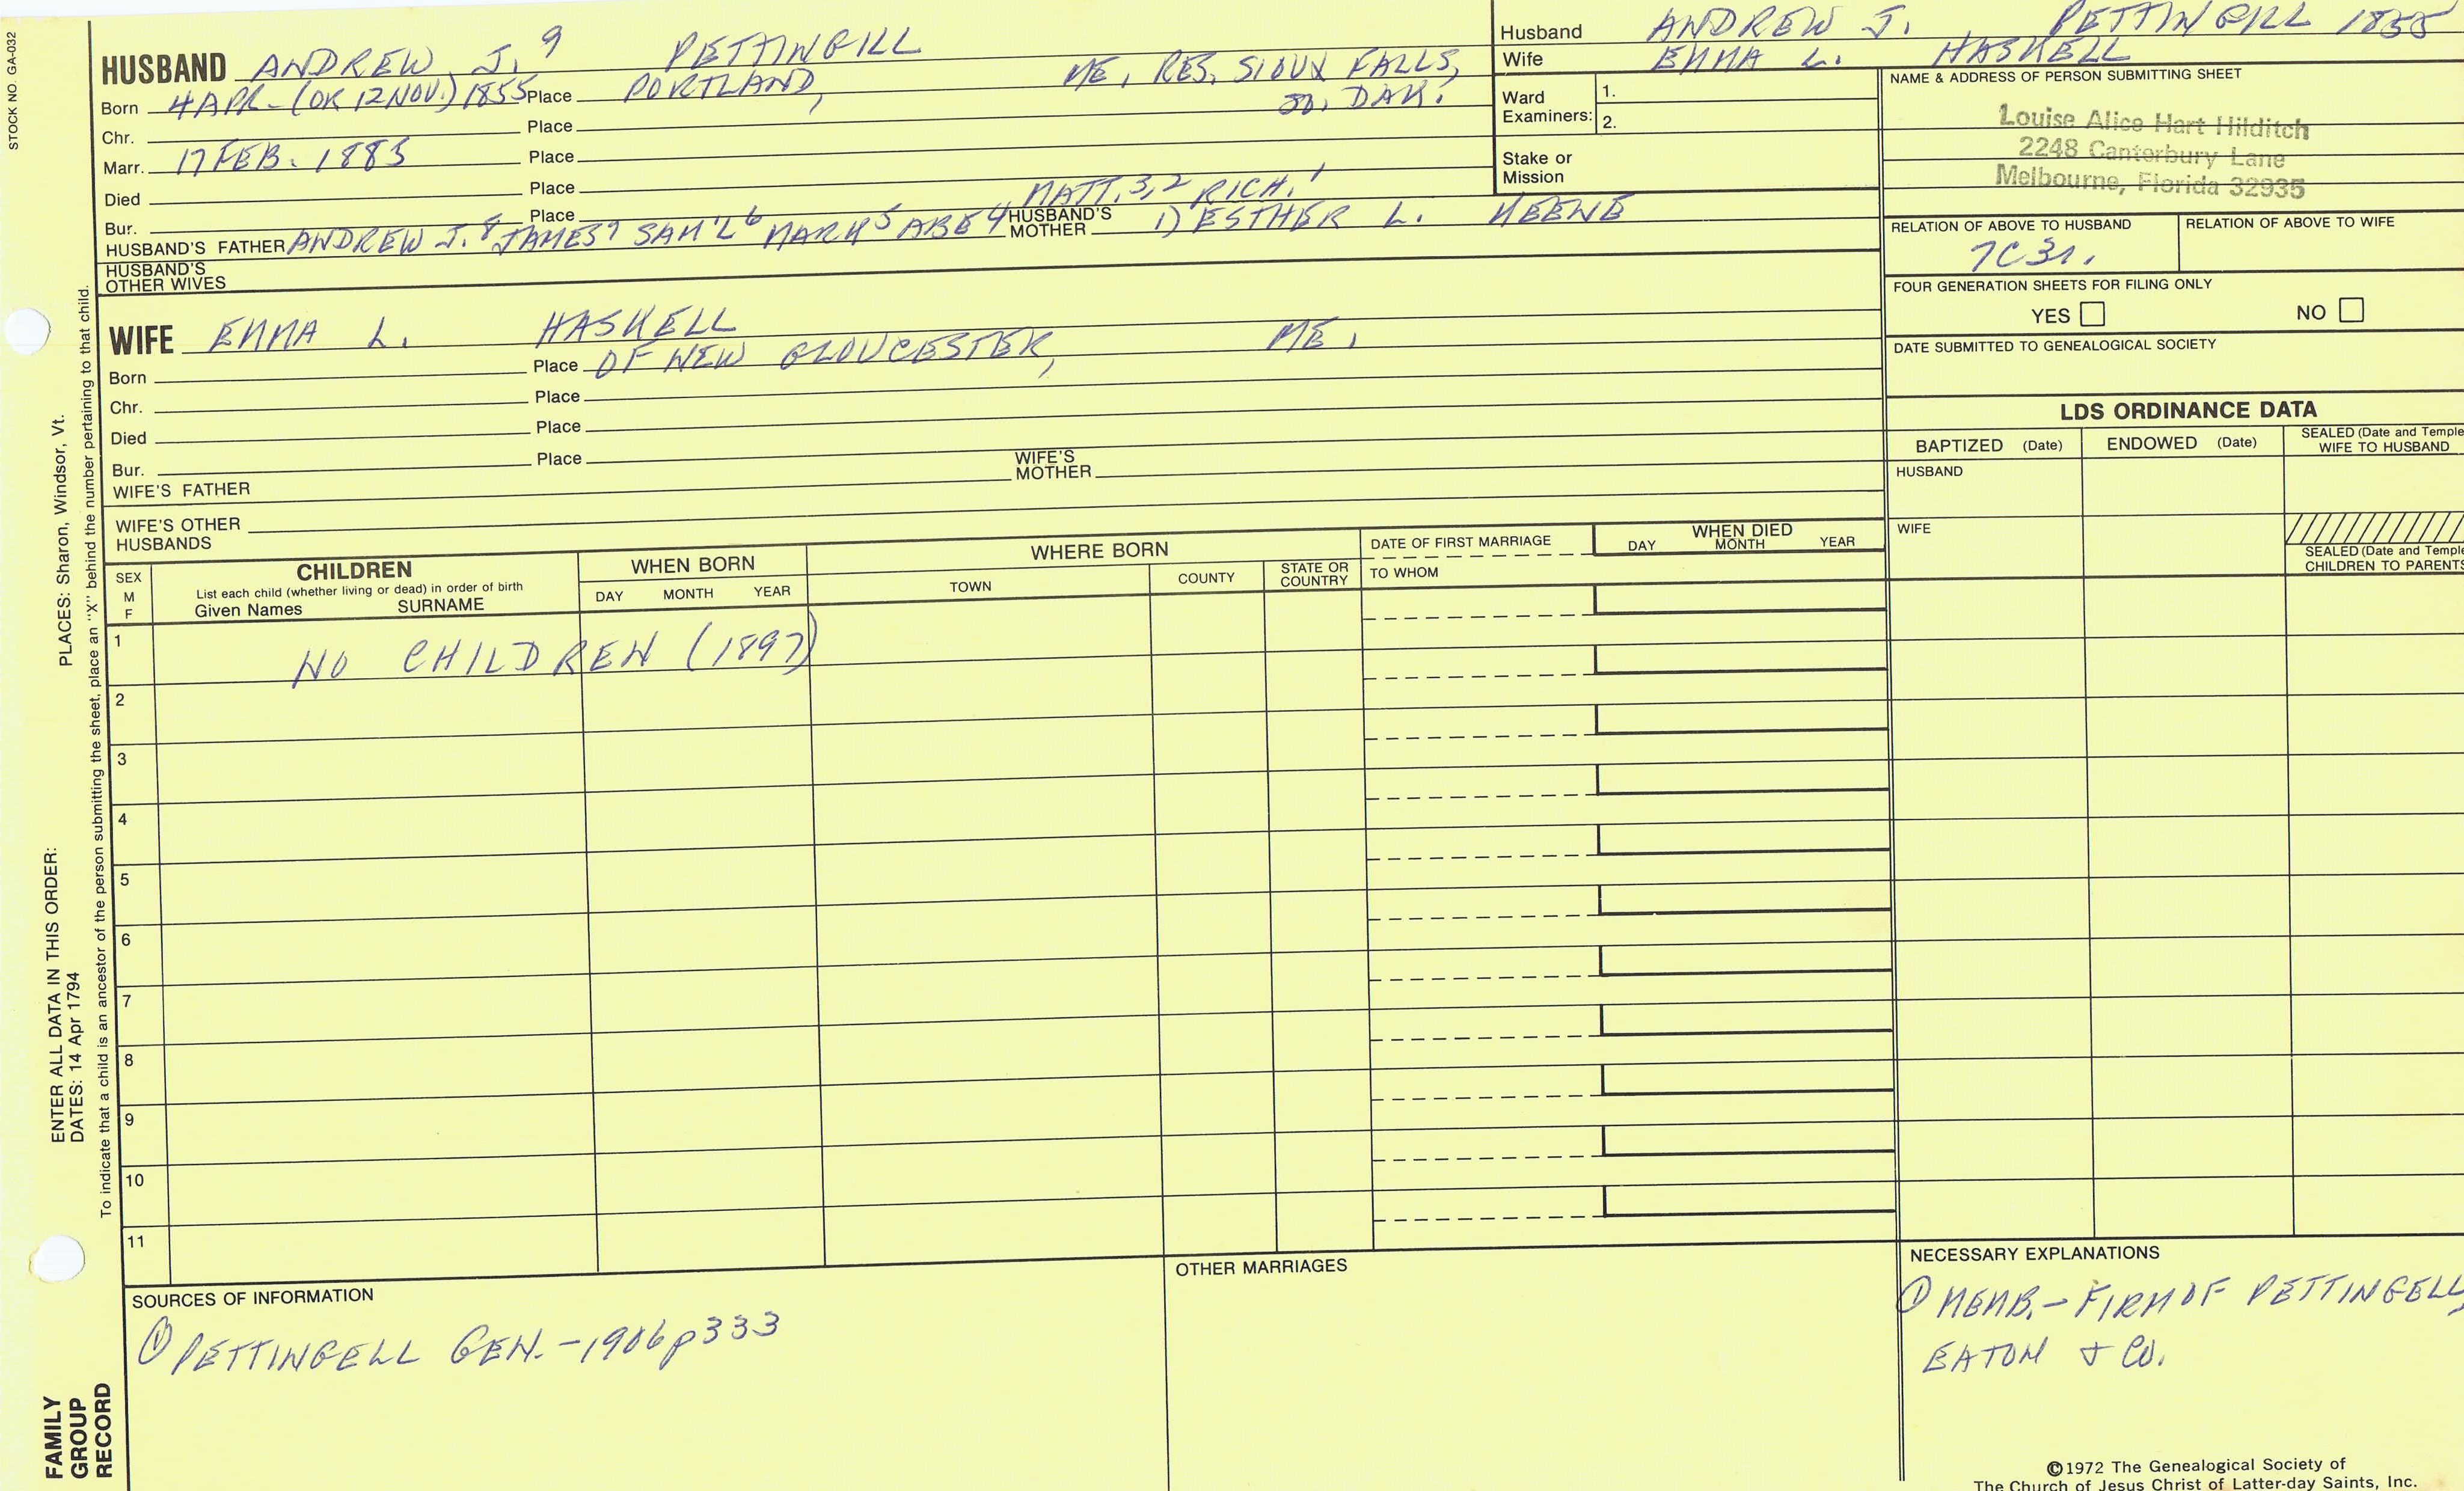 STOCK NO. GA-032
HUSBAND ANDREW J. 9 PETTINGILL
Born 4 APR- (OR 12 NOV.) 1855 Place PORTLAND, ME, RES, SIOUX FALLS, SO. DAK.
Chr. Place
Marr. 17 FEB. 1883 Place
Died Place
Bur. Place MATT.3,2 RICH.1
HUSBAND'S FATHER ANDREW J.8 JAMES7 SAM'L6 MARK5 ABE4 HUSBAND'S MOTHER 1) ESTHER L. KEENE
HUSBAND'S OTHER WIVES
WIFE EMMA L. HASKELL
Born Place OF NEW GLOUCESTER, ME,
Chr. Place
Died Place
Bur. Place
WIFE'S FATHER WIFE'S MOTHER
WIFE'S OTHER HUSBANDS
Husband ANDREW J. PETTINGILL 1855
Wife EMMA L. HASKELL
Ward Examiners: 1.
2.
Stake or Mission
NAME & ADDRESS OF PERSON SUBMITTING SHEET
Louise Alice Hart Hilditch
2248 Canterbury Lane
Melbourne, Florida 32935
RELATION OF ABOVE TO HUSBAND RELATION OF ABOVE TO WIFE
7C3r.
FOUR GENERATION SHEETS FOR FILING ONLY
YES NO
DATE SUBMITTED TO GENEALOGICAL SOCIETY
LDS ORDINANCE DATA
BAPTIZED (Date) ENDOWED (Date) SEALED (Date and Temple
WIFE TO HUSBAND
HUSBAND
WIFE
SEALED (Date and Temple
CHILDREN TO PARENTS
SEX M F
CHILDREN
List each child (whether living or dead) in order of birth
Given Names SURNAME
WHEN BORN
DAY MONTH YEAR
WHERE BORN
TOWN COUNTY STATE OR COUNTRY
DATE OF FIRST MARRIAGE
TO WHOM
WHEN DIED
DAY MONTH YEAR
1 NO CHILDREN (1897)
2
3
4
5
6
7
8
9
10
11
SOURCES OF INFORMATION
① PETTINGELL GEN. -1906 p 333
OTHER MARRIAGES
NECESSARY EXPLANATIONS
① MEMB.- FIRM OF PETTINGELL,
EATON & CO.
©1972 The Genealogical Society of
The Church of Jesus Christ of Latter-day Saints, Inc.
FAMILY GROUP RECORD
ENTER ALL DATA IN THIS ORDER:
DATES: 14 Apr 1794
PLACES: Sharon, Windsor, Vt.
To indicate that a child is an ancestor of the person submitting the sheet, place an "X" behind the number pertaining to that child.